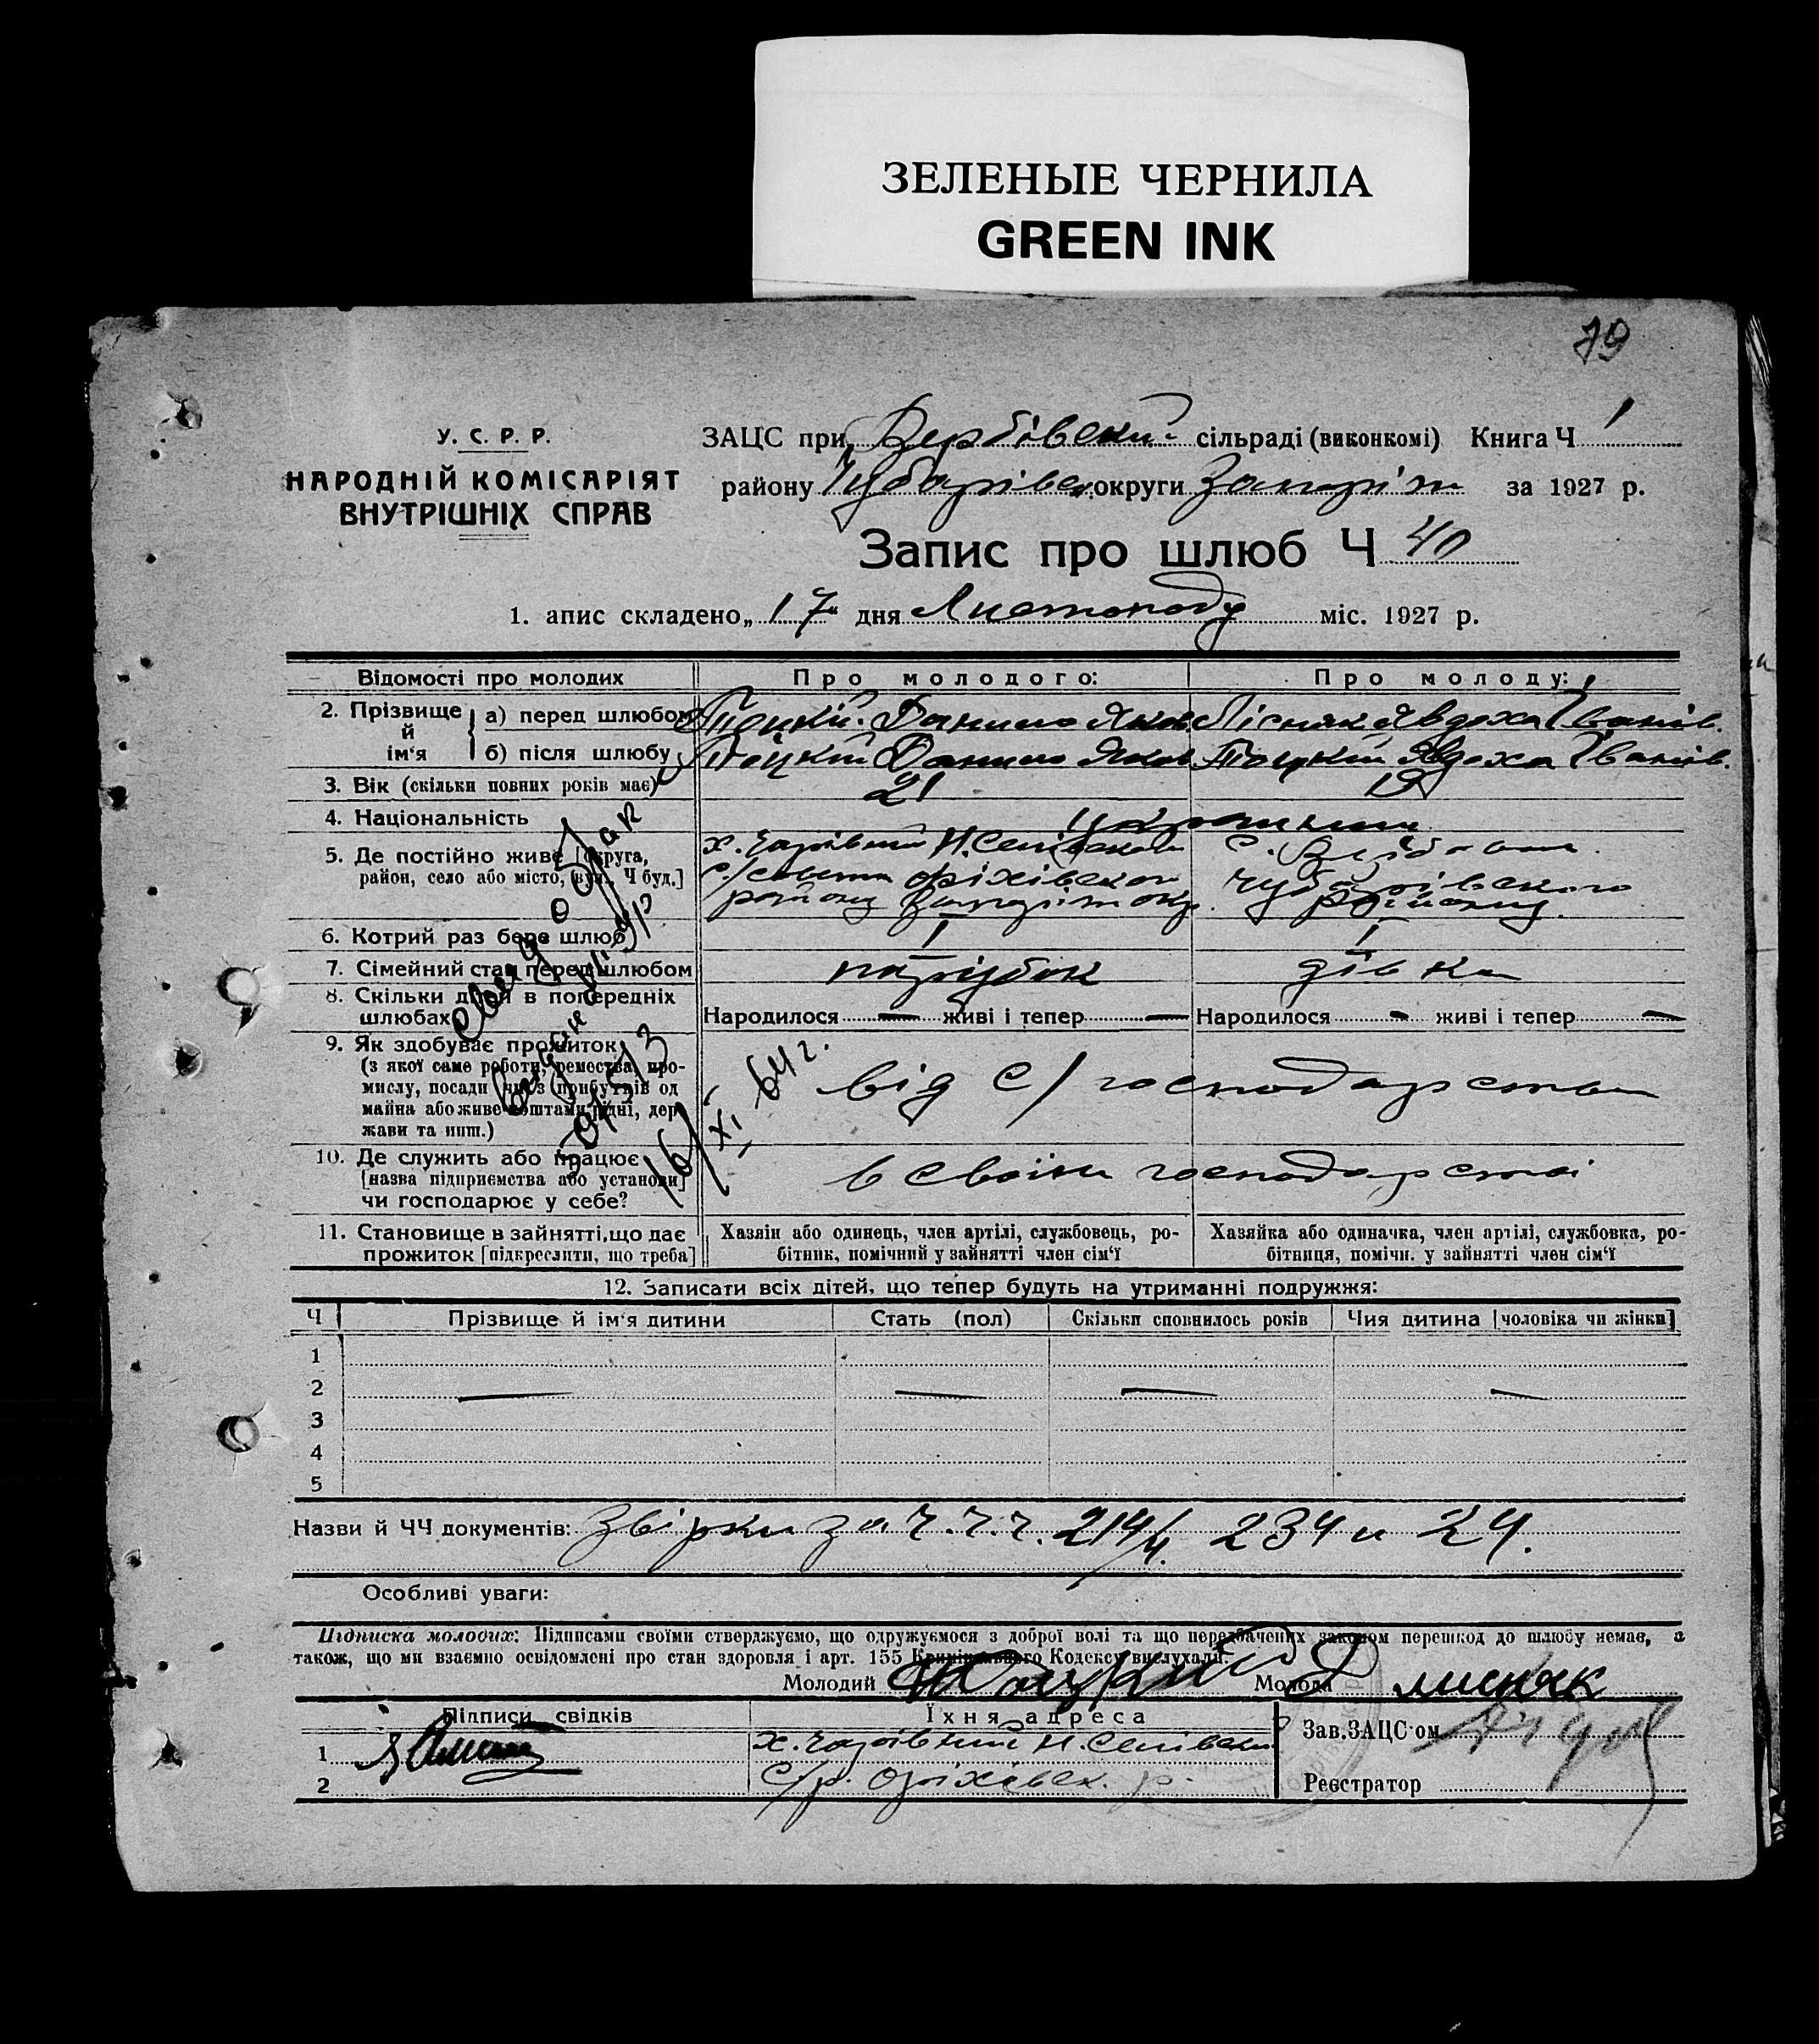 ЗЕЛЕНЫЕ ЧЕРНИЛА
GREEN INK
79
У. С. Р. Р.
НАРОДНІЙ КОМІСАРІЯТ
ВНУТРІШНІХ СПРАВ
ЗАЦС при Вербівській сільраді (виконкомі) Книга Ч 1
району Чубарівськ округи Запоріж за 1927 р.
Запис про шлюб Ч 40
1. апис складено „17“ дня Листопаду міс. 1927 р.
Відомості про молодих Про молодого: Про молоду:
2. Прізвище й ім'я
а) перед шлюбом Данило Яков. Лісняк Явдоха Іванів.
б) після шлюбу Данило Яков Явдоха Іванів.
3. Вік (скільки повних років має) 21 19
4. Національність українці
5. Де постійно живе [округа,
район, село або місто, вул., Ч буд.]
х. Чарівний Н. Селівської
с/совета Оріхівського
району Запоріж окр.
с. Вербове
Чубарівського
району.
6. Котрий раз бере шлюб I I
7. Сімейний стан перед шлюбом парубок дівка
8. Скільки дітей в попередніх
шлюбах Народилося — живі і тепер — Народилося — живі і тепер —
9. Як здобуває прожиток
(з якої саме роботи, ремества, про-
мислу, посади чи з прибутків од
майна або живе коштами рідні, дер-
жави та инш.)
від с/господарства
10. Де служить або працює
[назва підприємства або установи]
чи господарює у себе?
в своїм господарстві
16/XI 64 г.
11. Становище в зайнятті, що дає
прожиток [підкреслити, що треба]
Хазяїн або одинець, член артілі, службовець, ро-
бітник, помічний у зайнятті член сім'ї
Хазяйка або одиначка, член артілі, службовка, ро-
бітниця, помічн. у зайнятті член сім'ї
12. Записати всіх дітей, що тепер будуть на утриманні подружжя:
Ч Прізвище й ім'я дитини Стать (пол) Скільки сповнилось років Чия дитина [чоловіка чи жінки]
1
2 — — — —
3
4
5
Назви й ЧЧ документів: Звірки за ч.ч.ч. 214/4. 234 и 24.
Особливі уваги:
Підписка молодих: Підписами своїми стверджуємо, що одружуємося з доброї волі та що передбачених законом перешкод до шлюбу немає, а
також, що ми взаємно освідомлені про стан здоровля і арт. 155 Кримінального Кодексу вислухали.
Молодий Молода Лисняк
Підписи свідків Їхня адреса
1 х. Чарівний Н. Селівськ
2 с/р. Оріхівськ. р.
Зав. ЗАЦС'ом
Реєстратор